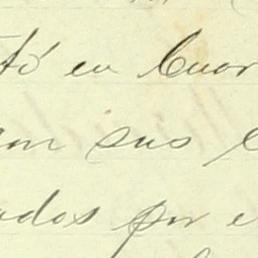 tó en Cuar
on sus
ados por e